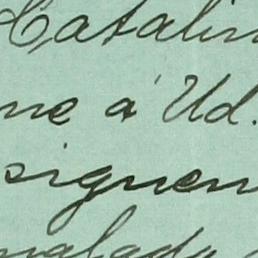 Catalin
me a Ud.
siguen